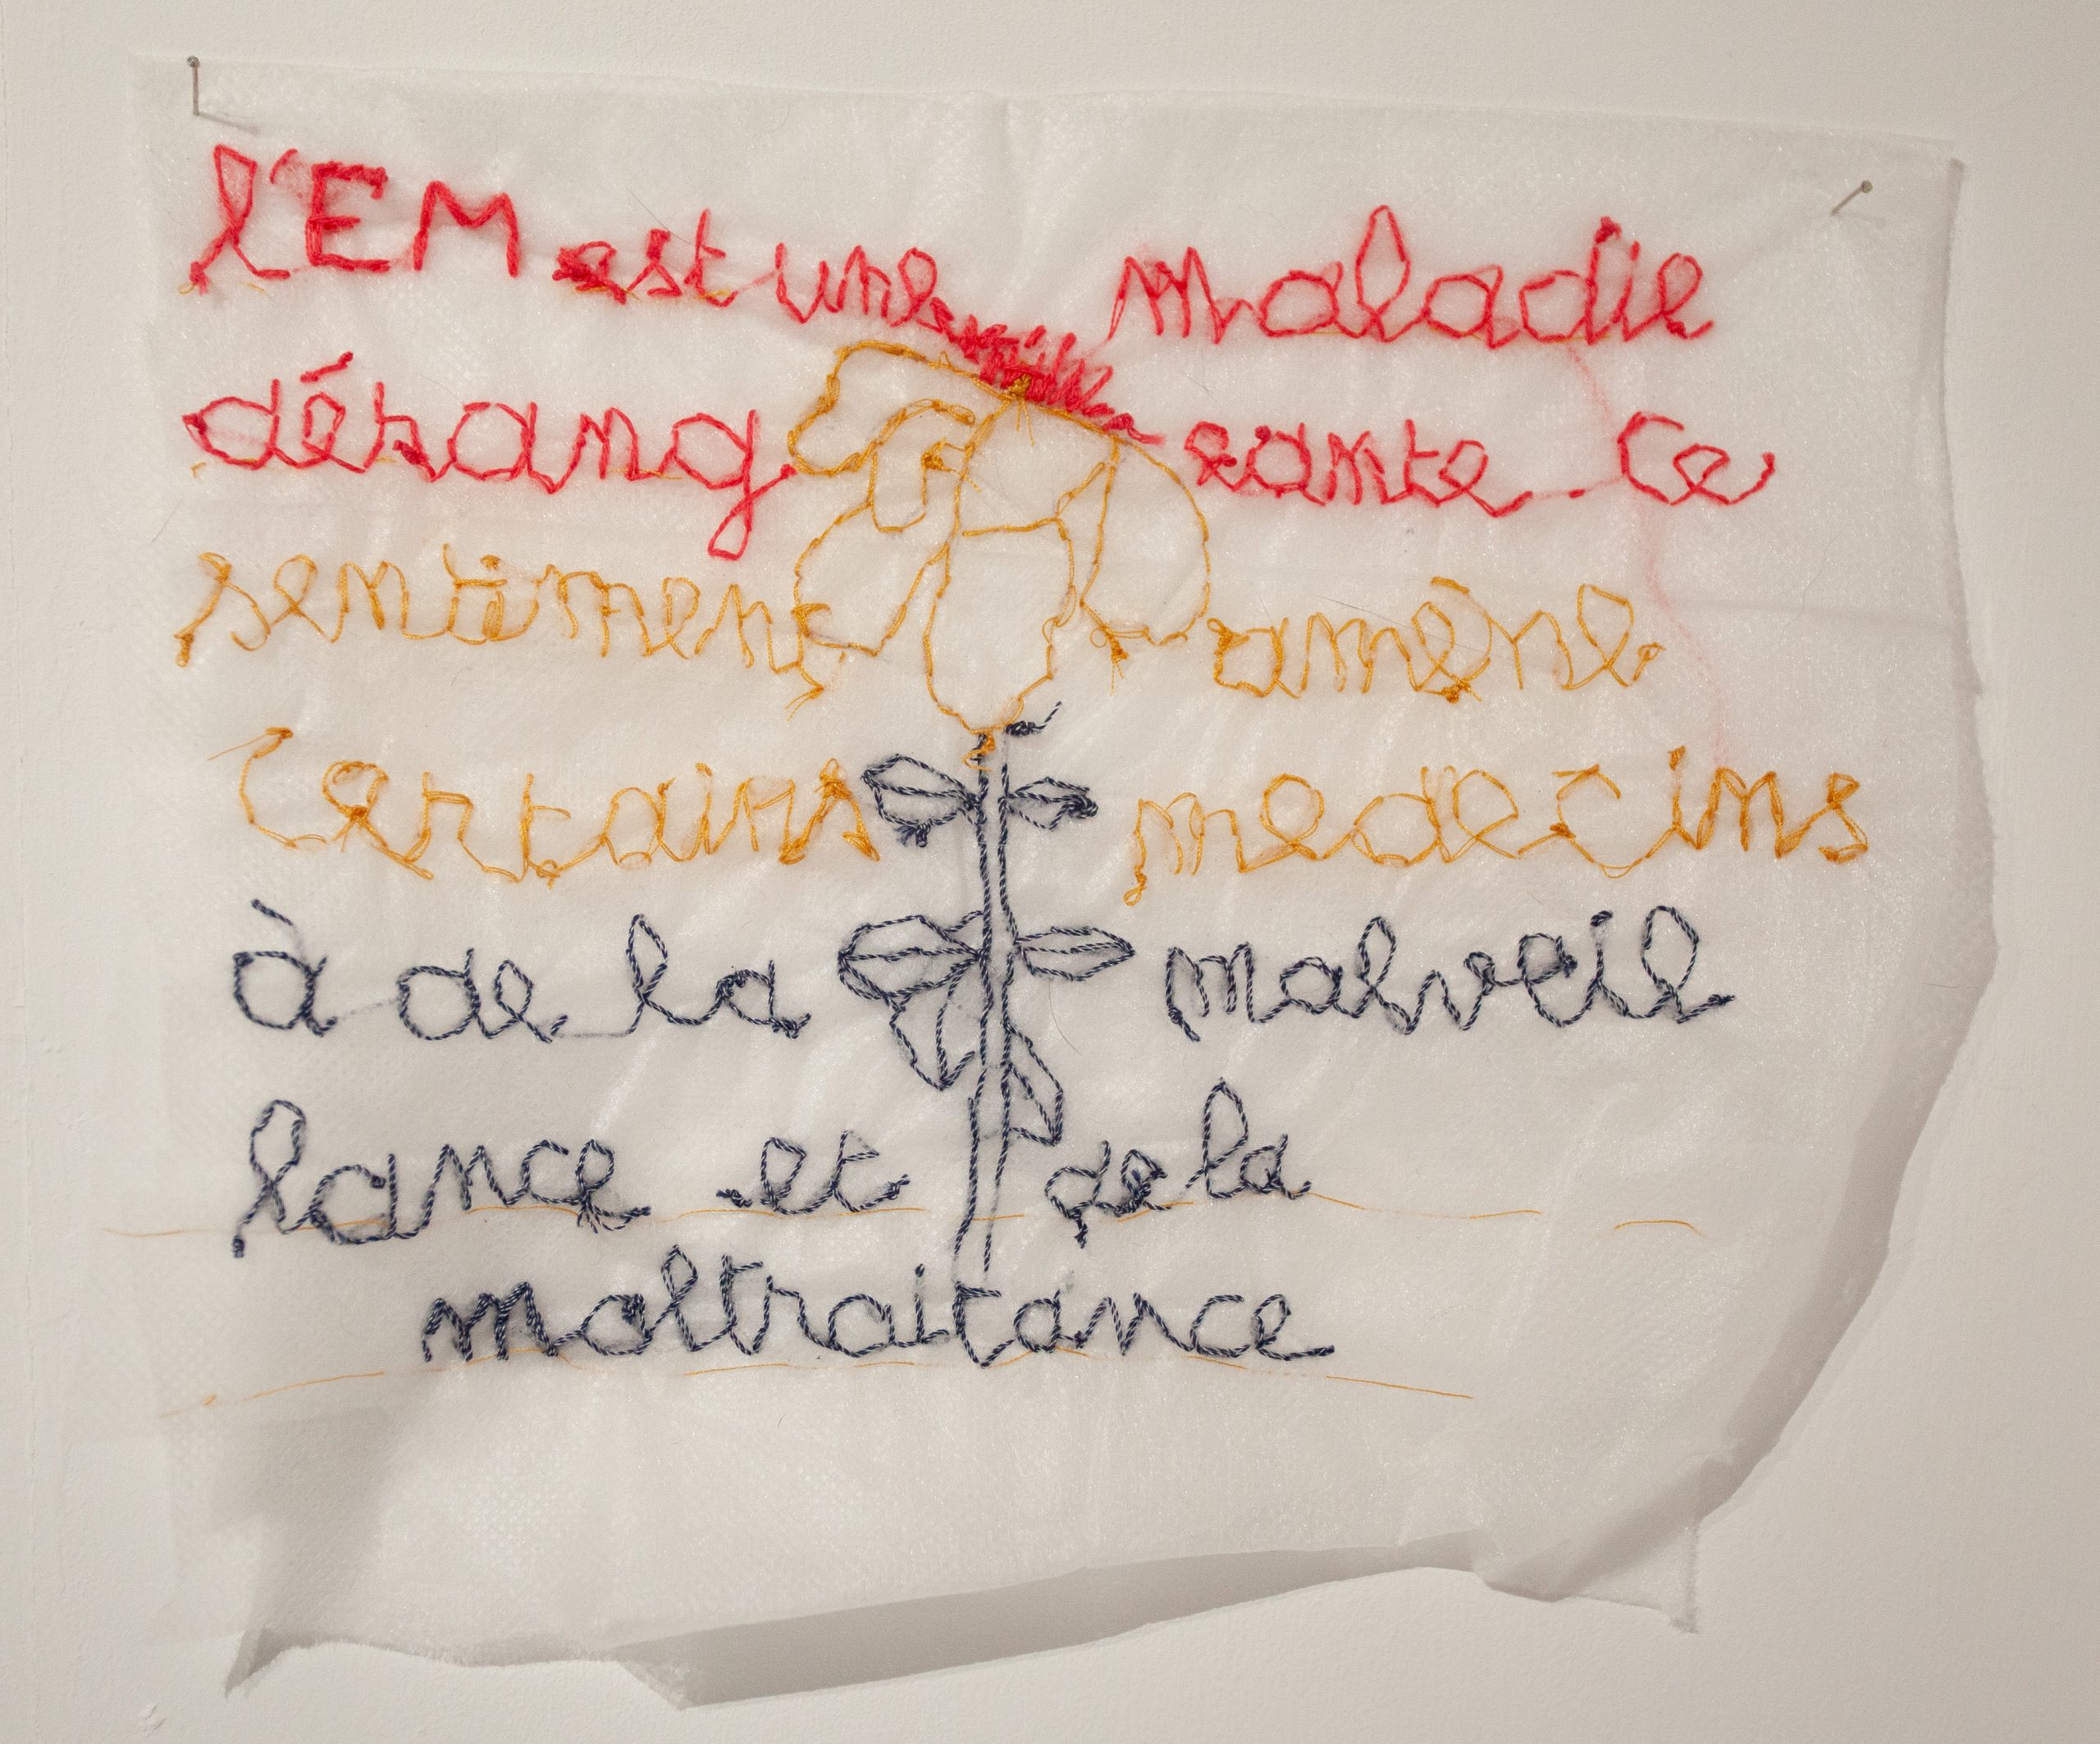 l'EM est une maladie
dérang eante. Ce
sentiment amène
Certains medecins
à de la malveil
lance et de la
maltraitance